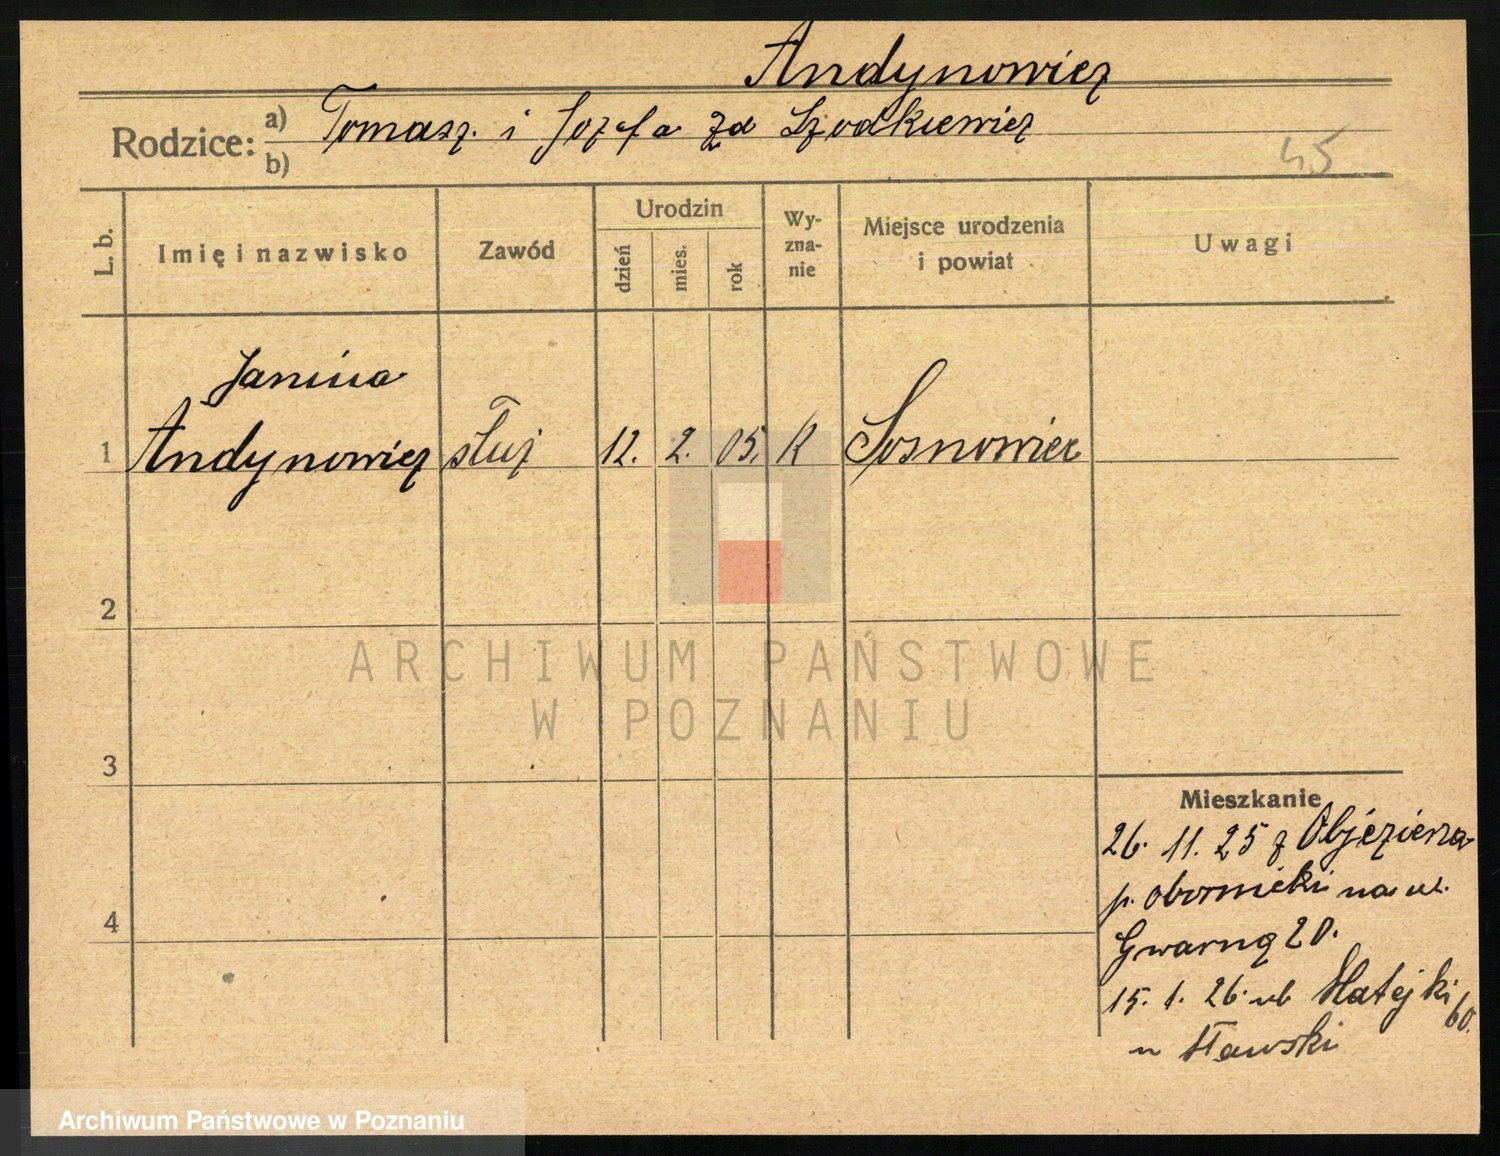 Andynowicz
Rodzice: a) Tomasz i Jozefa zd Szodkiewicz
b)
45
L. b. Imię i nazwisko Zawód Urodzin dzień mies. rok Wy-zna-nie Miejsce urodzenia i powiat Uwagi
Janina
1 Andynowicz służ 12. 2. 05. K Sosnowiec
2
ARCHIWUM PAŃSTWOWE
W POZNANIU
3
Mieszkanie
26. 11. 25 z Objezierza
p. obornicki na ul.
4
Gwarną 20.
15. 1. 26. ul Matejki 60.
u Sławski
Archiwum Państwowe w Poznaniu